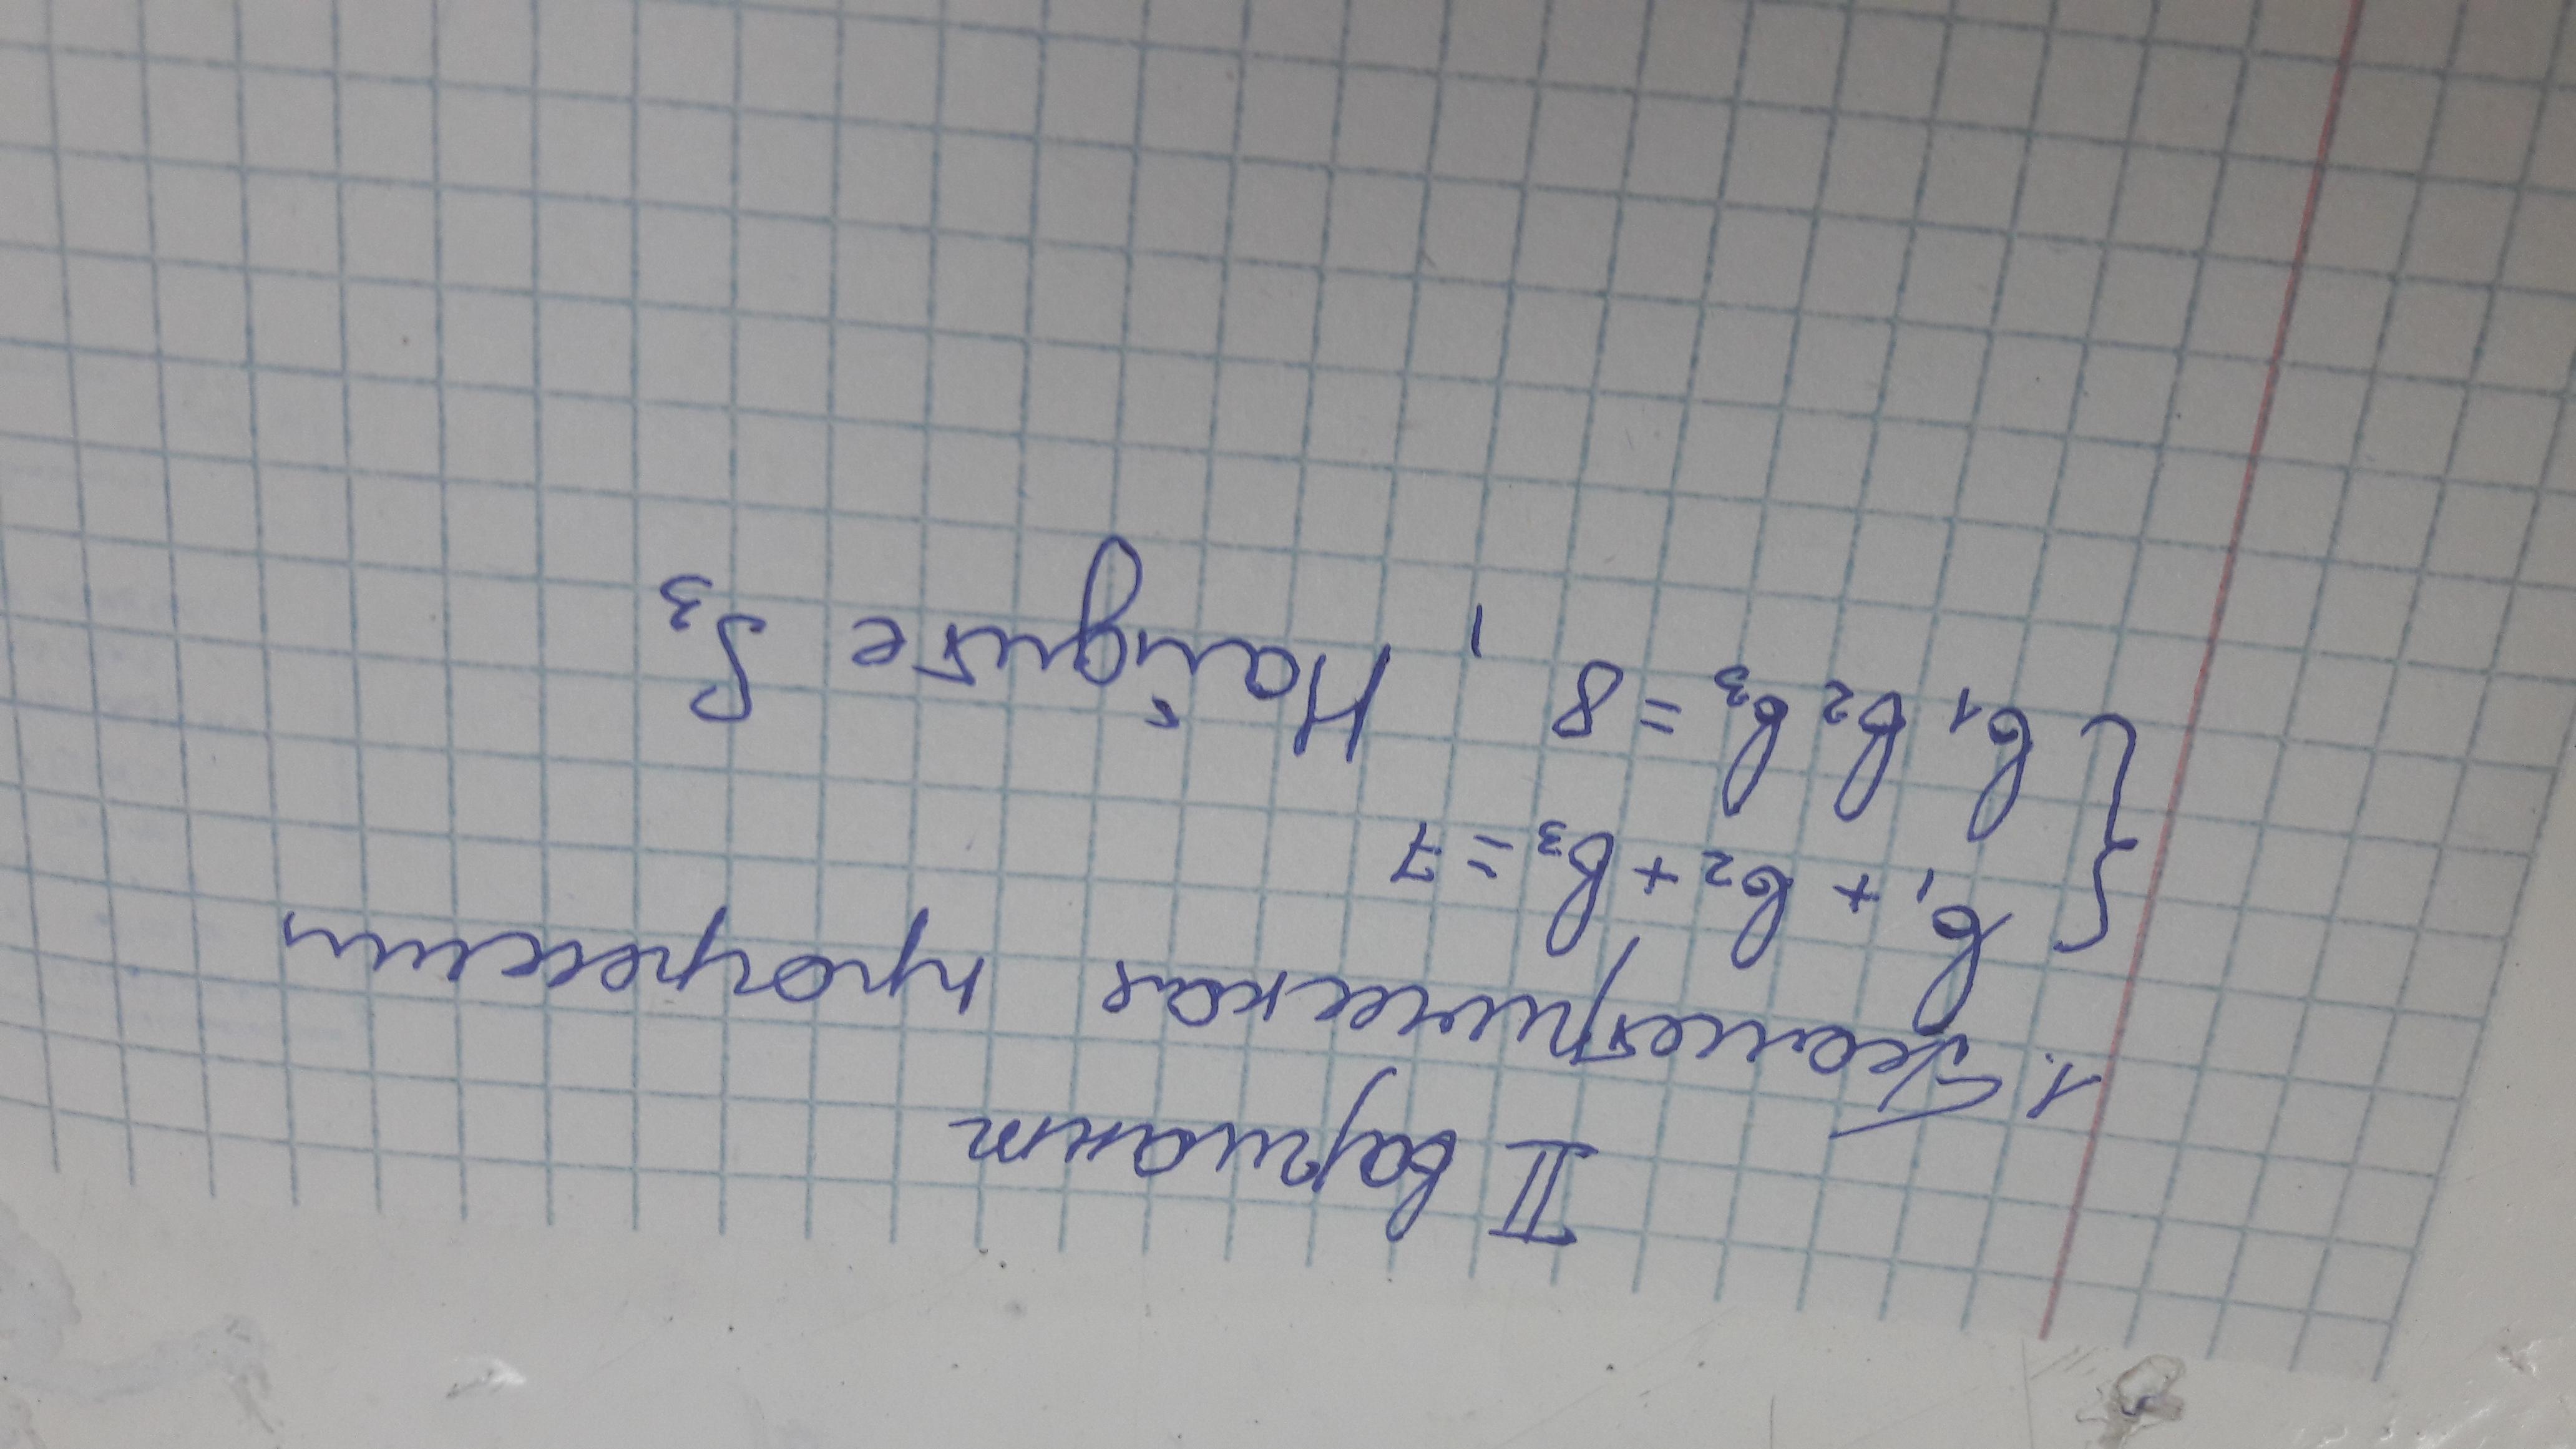 II вариант
1. Геометрическая прогрессии
b₁ + b₂ + b₃ = 7
b₁ b₂ b₃ = 8 , Найдите S₃